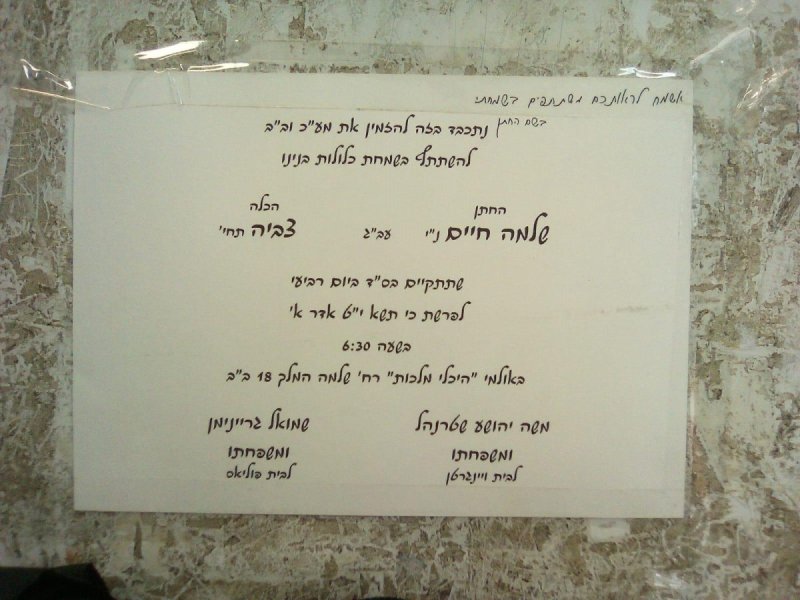 אשמח לראותכם משתתפים בשמחתי
בשם החתן
נתכבד בזה להזמין את מע"כ וב"ב
להשתתף בשמחת כלולות בנינו
החתן
הכלה
שלמה חיים ני"י עב"ג צביה תחי'
שתתקיים בס"ד ביום רביעי
לפרשת כי תשא י"ט אדר א'
בשעה 6:30
באולמי "היכלי מלכות" רח' שלמה המלך 18 ב"ב
משה יהושע שטרנהל
ומשפחתו
לבית ויינגרטן
שמואל גריינימן
ומשפחתו
לבית פוליאס